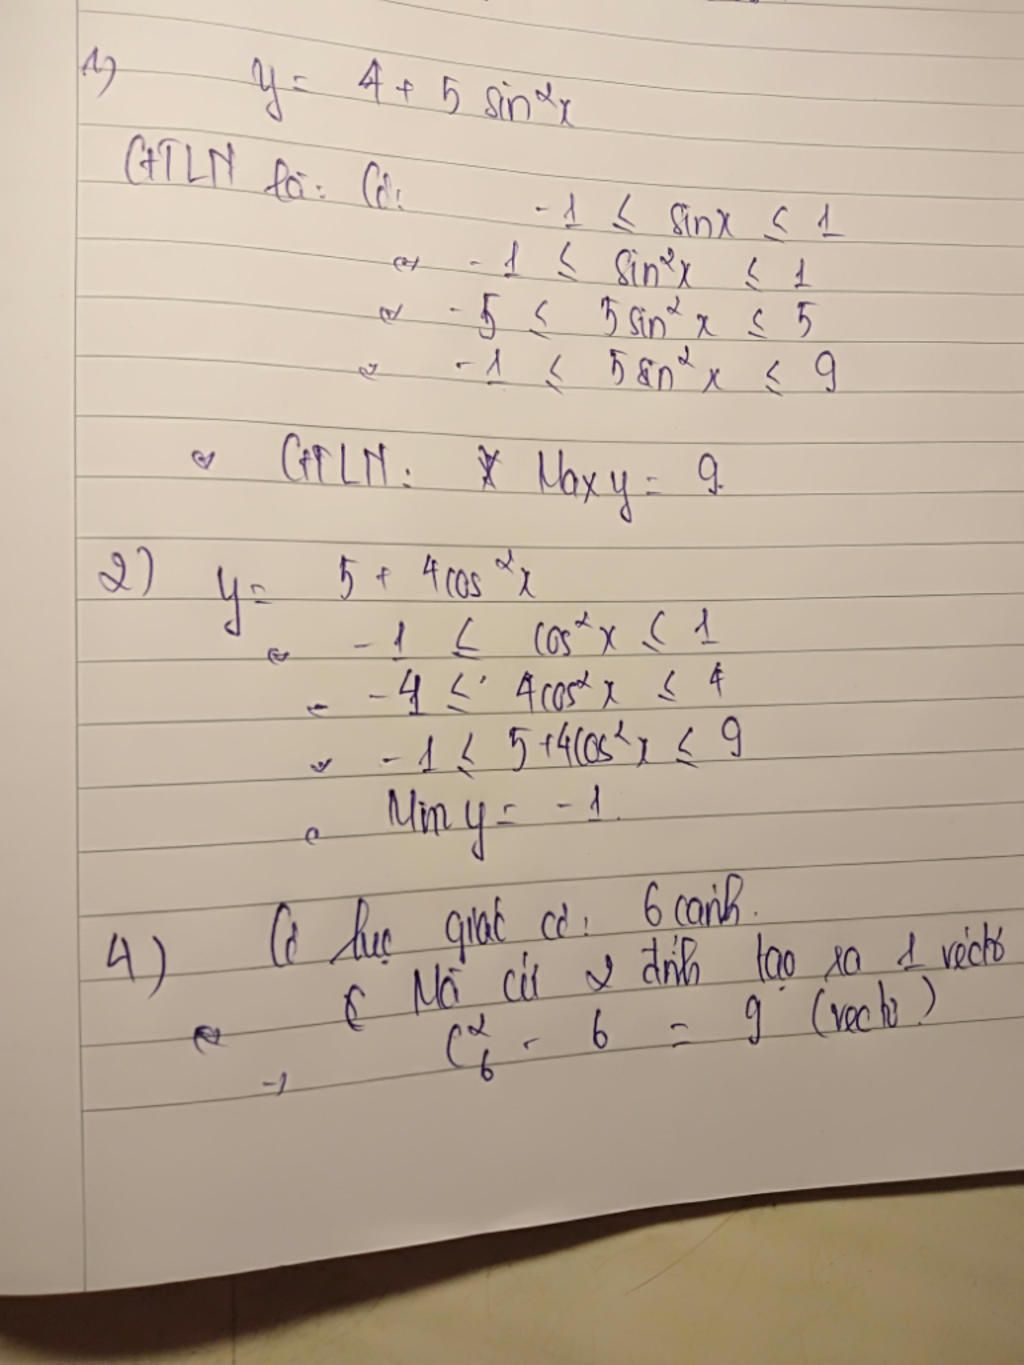 1) y = 4 + 5 sin²x
GTLN là: Có: -1 ≤ sinx ≤ 1
⇔ -1 ≤ sin²x ≤ 1
⇔ -5 ≤ 5sin²x ≤ 5
⇔ -1 ≤ 5sin²x ≤ 9
⇔ GTLN: Max y = 9
2) y = 5 + 4cos²x
⇔ -1 ≤ cos²x ≤ 1
-4 ≤ 4cos²x ≤ 4
⇔ -1 ≤ 5+4cos²x ≤ 9
Min y = -1.
4) Có lục giác có: 6 cạnh.
Mà cứ 2 đỉnh tạo ra 1 véctơ
→ C²₆ - 6 = 9 (vectơ)